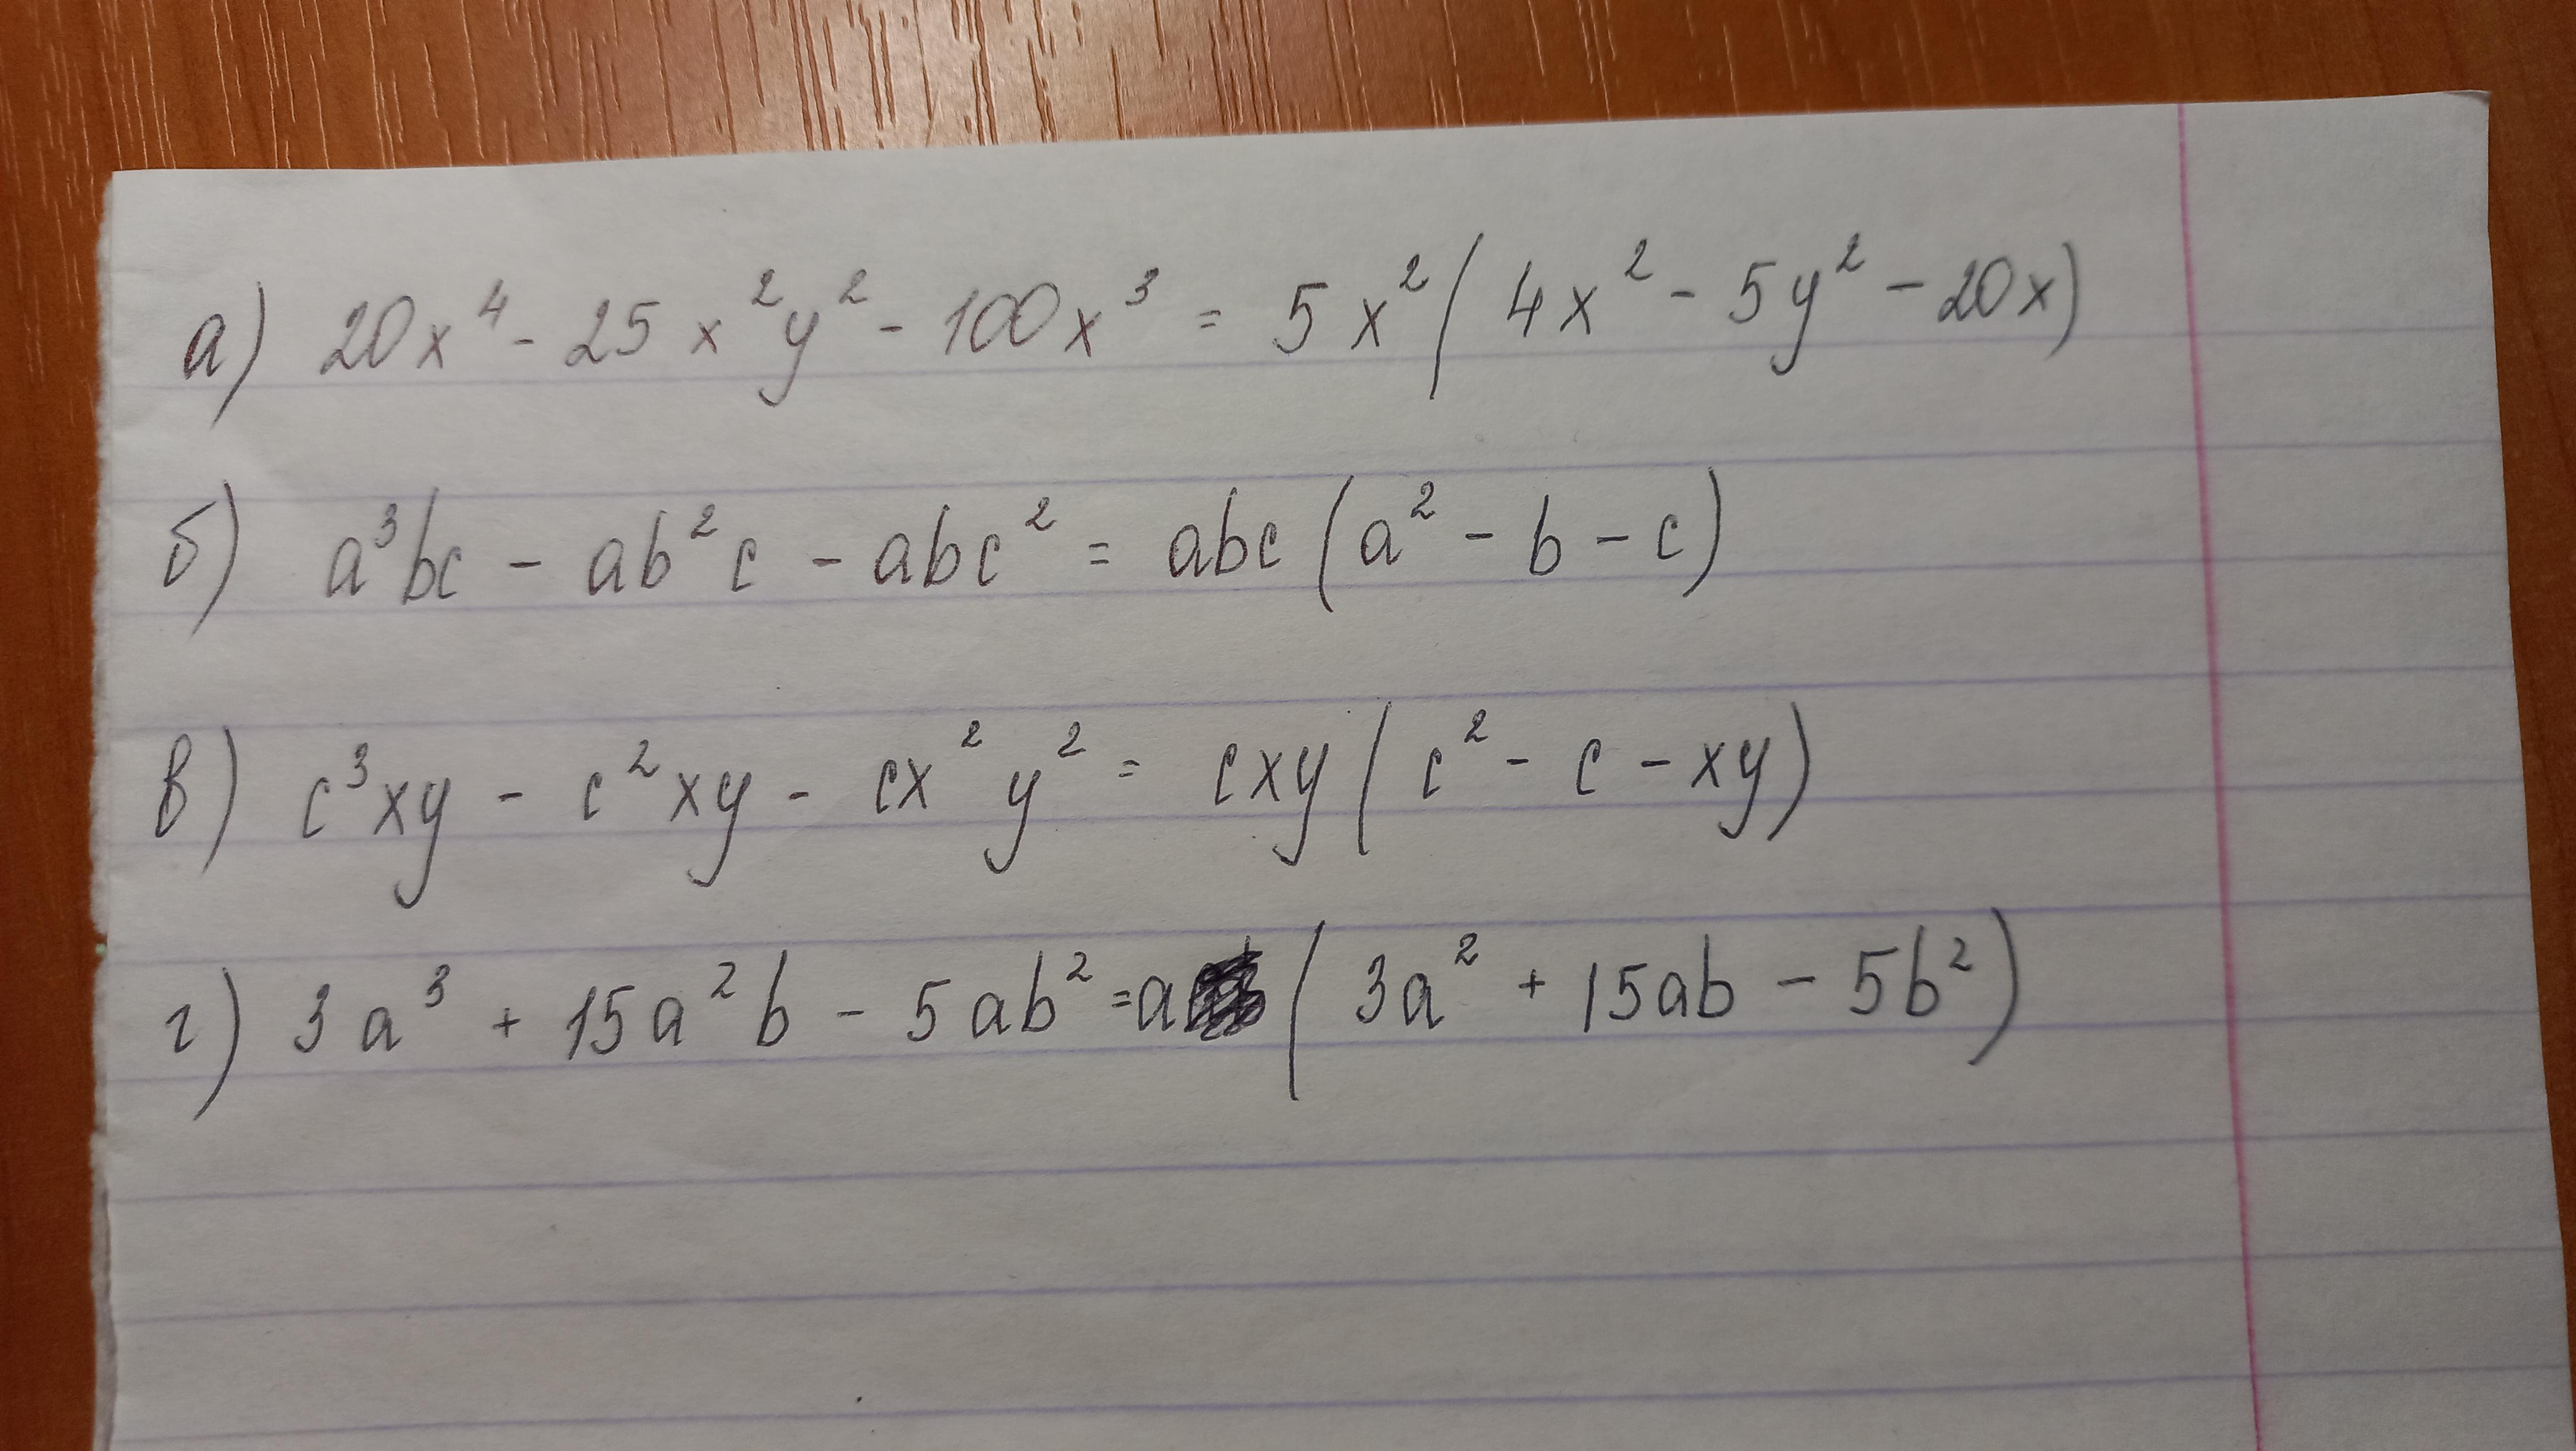 а) 20x⁴ - 25x²y² - 100x³ = 5x²(4x² - 5y² - 20x)
б) a³bc - ab²c - abc² = abc(a² - b - c)
в) c³xy - c²xy - cx²y² = cxy(c² - c - xy)
г) 3a³ + 15a²b - 5ab² = a(3a² + 15ab - 5b²)